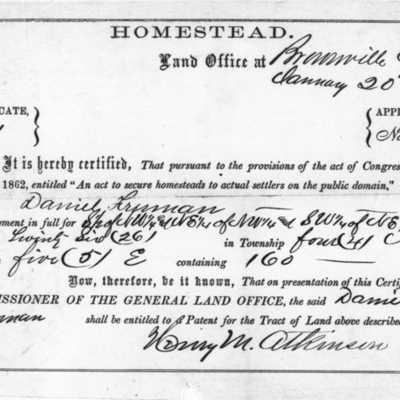 HOMESTEAD.
Land Office at Brownville
January 20
CATE,
APPL
No
It is hereby certified, That pursuant to the provisions of the act of Congres
1862, entitled "An act to secure homesteads to actual settlers on the public domain,"
Daniel Freeman
ement in full for S½ of NW¼ & NE¼ of NW¼ & SW¼ of NE
Twenty Six (26) in Township four (4)
five (5) E containing 160
Now, therefore, be it known, That on presentation of this Certif
ISSIONER OF THE GENERAL LAND OFFICE, the said Danie
eeman shall be entitled to a Patent for the Tract of Land above described
Henry M. Atkinson